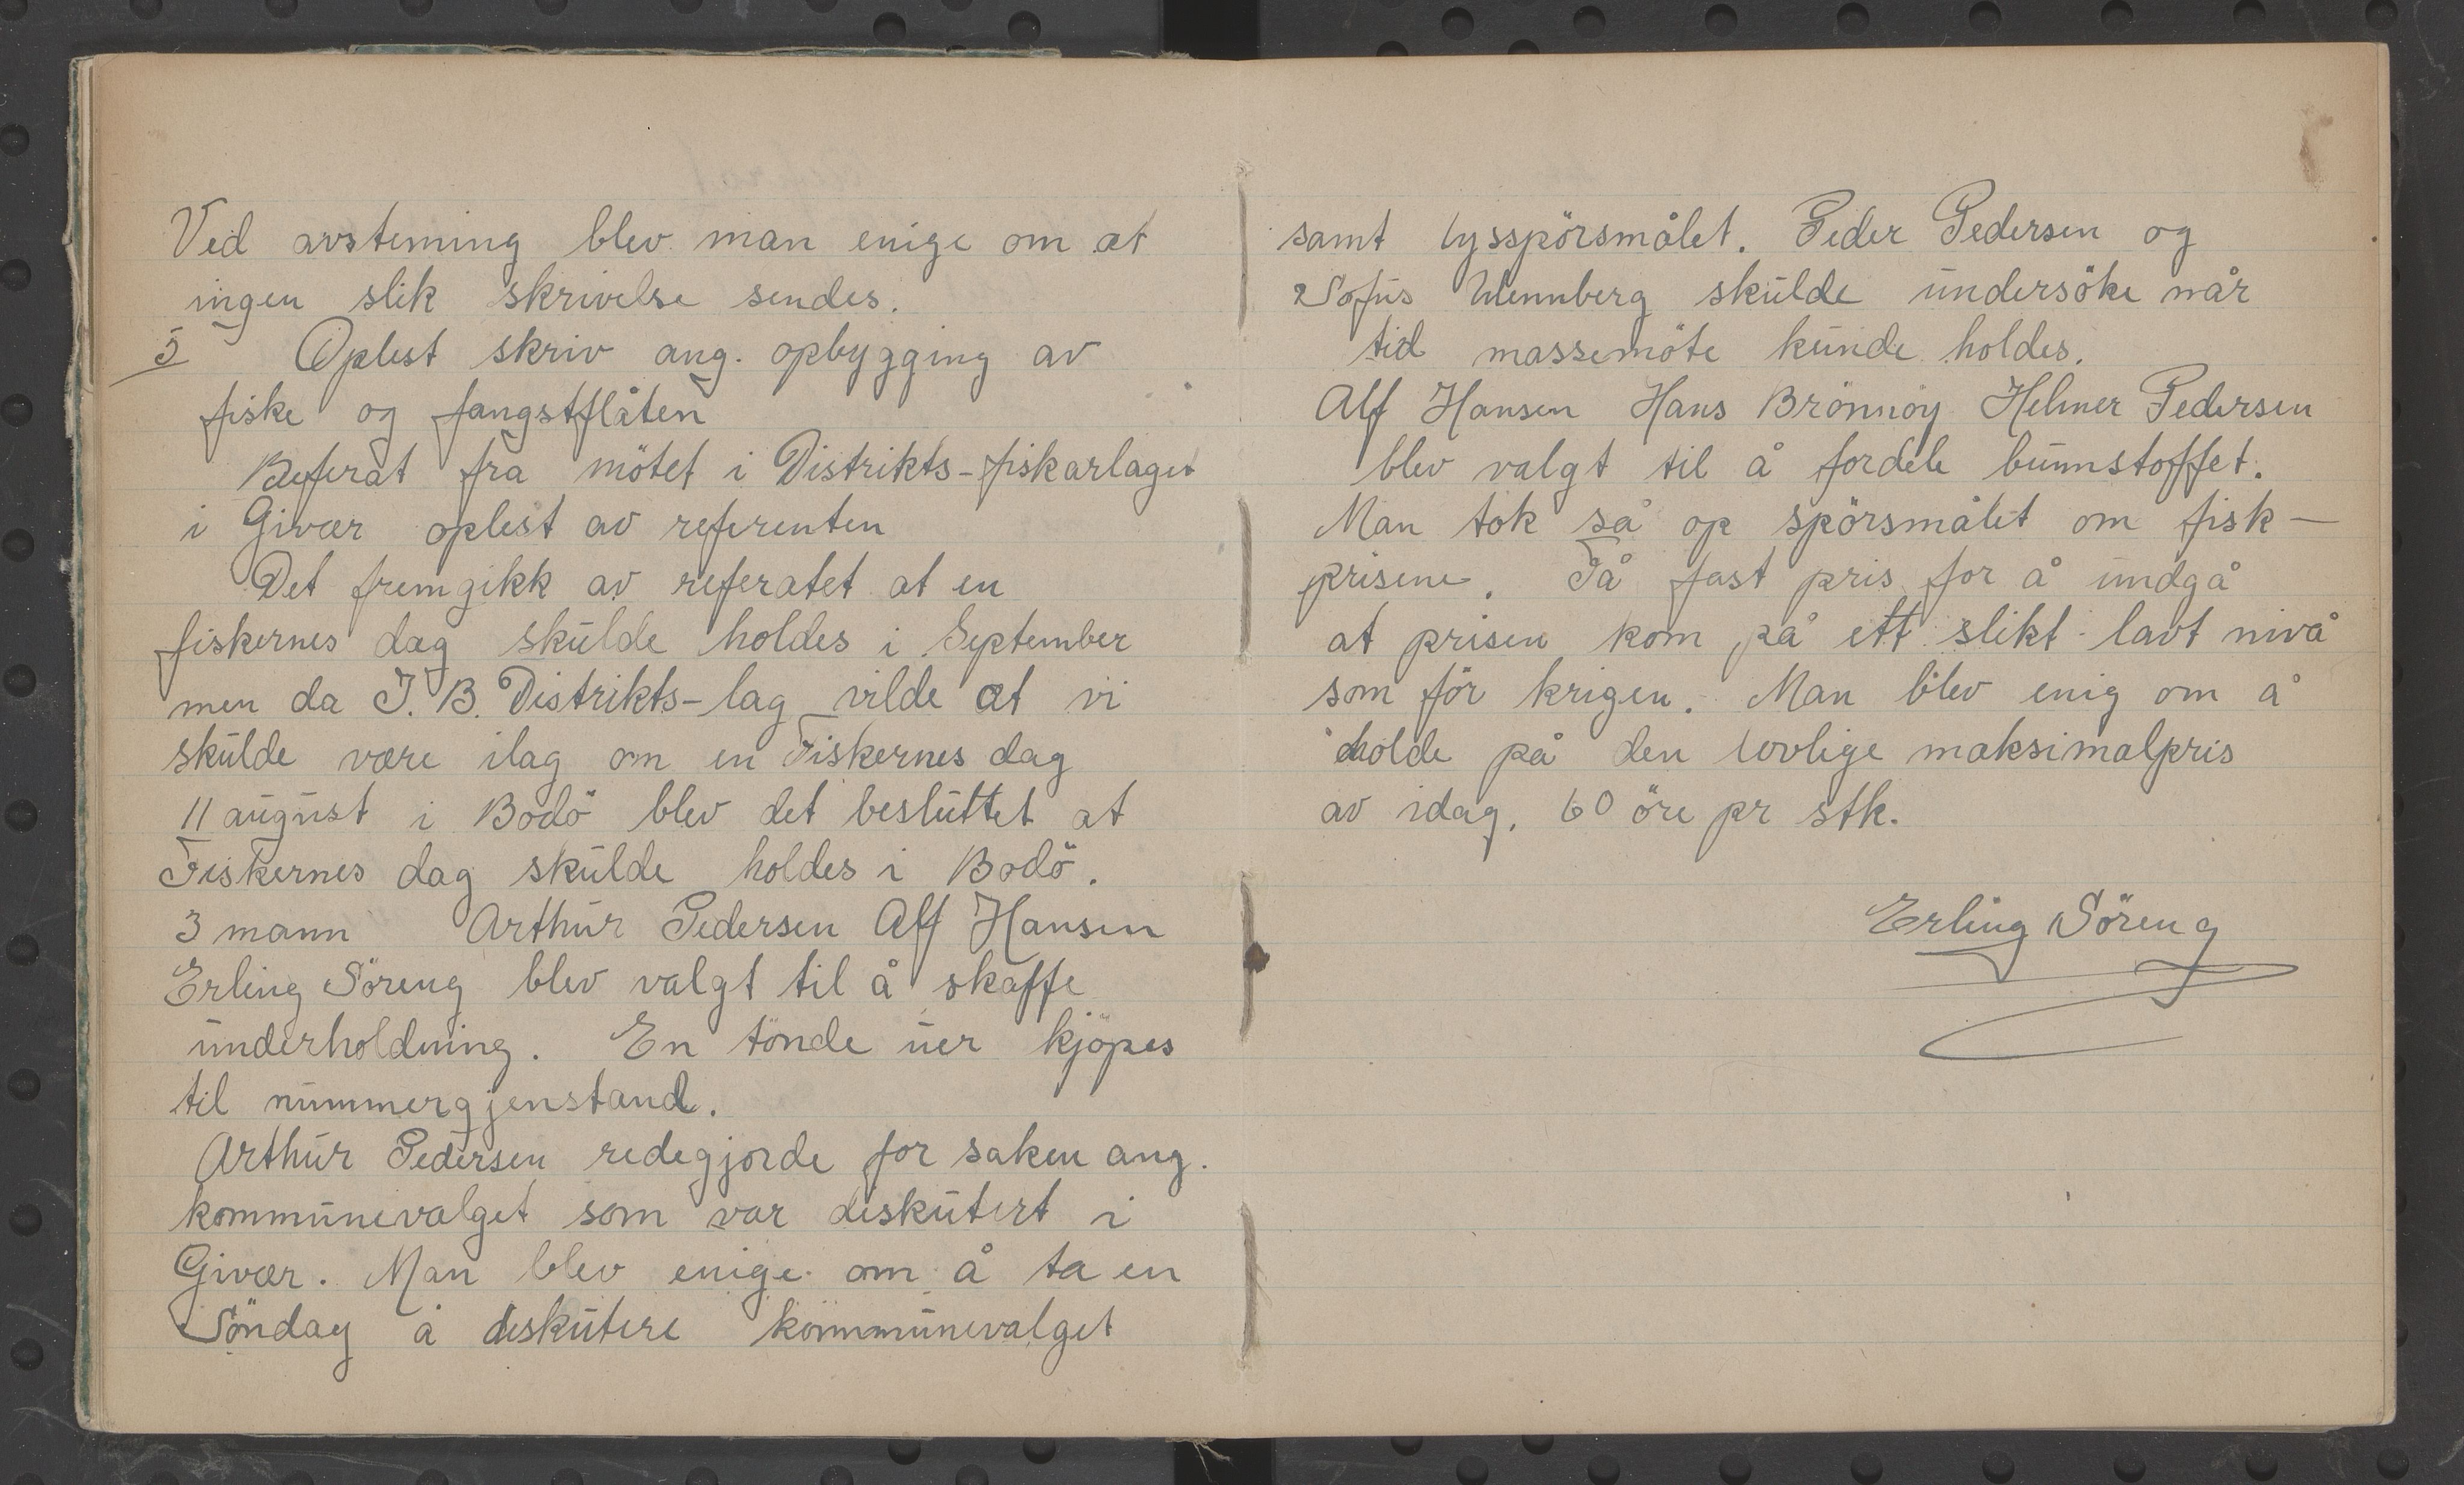 Ved avsteming blev man enige om at
ingen slik skrivelse sendes.
5 Oplest skriv ang. opbygging av
fiske og fangstflåten
Referat fra mötet i Distrikts-fiskarlaget
i Givær oplest av referenten
Det fremgikk av referatet at en
fiskernes dag skulde holdes i September
men da I. B. Distrikts-lag vilde at vi
skulde være ilag om en Fiskernes dag
11 august i Bodö blev det besluttet at
Fiskernes dag skulde holdes i Bodö.
3 mann Arthur Pedersen Alf Hansen
Erling Söreng blev valgt til å skaffe
underholdning. En tönde uer kjöpes
til nummergjenstand.
Arthur Pedersen redegjorde for saken ang.
kommunevalget som var diskutert i
Givær. Man blev enige om å ta en
Söndag å diskutere kommunevalget
samt lysspörsmålet. Peder Pedersen og
Sofus Wennberg skulde undersöke når
tid massemöte kunde holdes.
Alf Hansen Hans Brönnöy Helmer Pedersen
blev valgt til å fordele bunnstoffet.
Man tok så op spörsmålet om fisk-
prisene. Få fast pris for å undgå
at prisen kom på ett slikt lavt nivå
som för krigen. Man blev enig om å
holde på den lovlige maksimalpris
av idag. 60 öre pr stk.
Erling Söreng